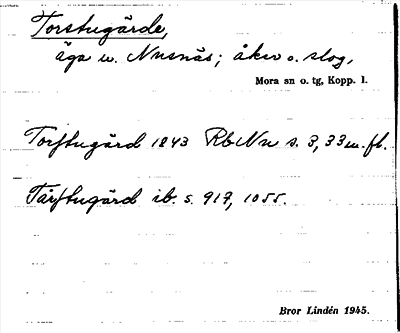 Torstugärde,
äga u. Nusnäs; åker o. slog,
Mora sn o. tg, Kopp. l.
Torstugärd 1843 RbNu s. 3, 33 m. fl.
Tårstugärd ib. s. 917, 1055.
Bror Lindén 1945.